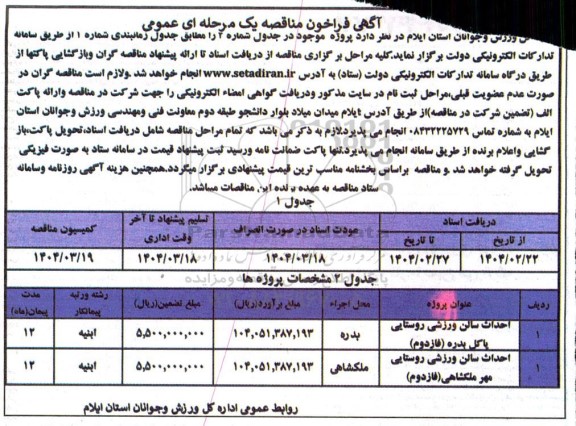 آگهی فراخوان مناقصه یک مرحله ای عمومی
کل ورزش وجوانان استان ایلام در نظر دارد پروژه موجود در جدول شماره ۲ را مطابق جدول زمانبندی شماره ۱ از طریق سامانه
تدارکات الکترونیکی دولت برگزار نماید.کلیه مراحل بر گزاری مناقصه از دریافت اسناد تا ارائه پیشنهاد مناقصه گران وبازگشایی پاکتها از
طریق درگاه سامانه تدارکات الکترونیکی دولت (ستاد) به آدرس www.setadiran.ir انجام خواهد شد .ولازم است مناقصه گران در
صورت عدم عضویت قبلی،مراحل ثبت نام در سایت مذکور ودریافت گواهی امضاء الکترونیکی را جهت شرکت در مناقصه وارائه پاکت
الف (تضمین شرکت در مناقصه)از طریق آدرس :ایلام میدان میلاد بلوار دانشجو طبقه دوم معاونت فنی ومهندسی ورزش وجوانان استان
ایلام به شماره تماس ۰۸۴۳۲۲۲۵۷۲۹ انجام می پذیرد.لازم به ذکر می باشد که تمام مراحل مناقصه شامل دریافت اسناد،تحویل پاکت،باز
گشایی واعلام برنده از طریق سامانه انجام می پذیرد.تنها پاکت ضمانت نامه ورسید ثبت پیشنهاد قیمت در سامانه ستاد به صورت فیزیکی
تحویل گرفته خواهد شد .و مناقصه براساس بخشنامه مناسب ترین قیمت پیشنهادی برگزار میگردد.همچنین هزینه آگهی روزنامه وسامانه
ستاد مناقصه به عهده برنده این مناقصات میباشد.
جدول ۱
دریافت اسناد عودت اسناد در صورت انصراف تسلیم پیشنهاد تا آخر وقت اداری کمیسیون مناقصه
از تاریخ تا تاریخ
۱۴۰۴/۰۲/۲۲ ۱۴۰۴/۰۲/۲۷ ۱۴۰۴/۰۳/۱۸ ۱۴۰۴/۰۳/۱۸ ۱۴۰۴/۰۳/۱۹
جدول ۲ مشخصات پروژه ها
ردیف عنوان پروژه محل اجراء مبلغ برآورد(ریال) مبلغ تضمین(ریال) رشته ورتبه پیمانکار مدت پیمان(ماه)
۱ احداث سالن ورزشی روستایی پاکل بدره (فازدوم) بدره ۱۰۴,۰۵۱,۳۸۷,۱۹۳ ۵,۵۰۰,۰۰۰,۰۰۰ ابنیه ۱۲
۱ احداث سالن ورزشی روستایی مهر ملکشاهی(فازدوم) ملکشاهی ۱۰۴,۰۵۱,۳۸۷,۱۹۳ ۵,۵۰۰,۰۰۰,۰۰۰ ابنیه ۱۲
روابط عمومی اداره کل ورزش وجوانان استان ایلام